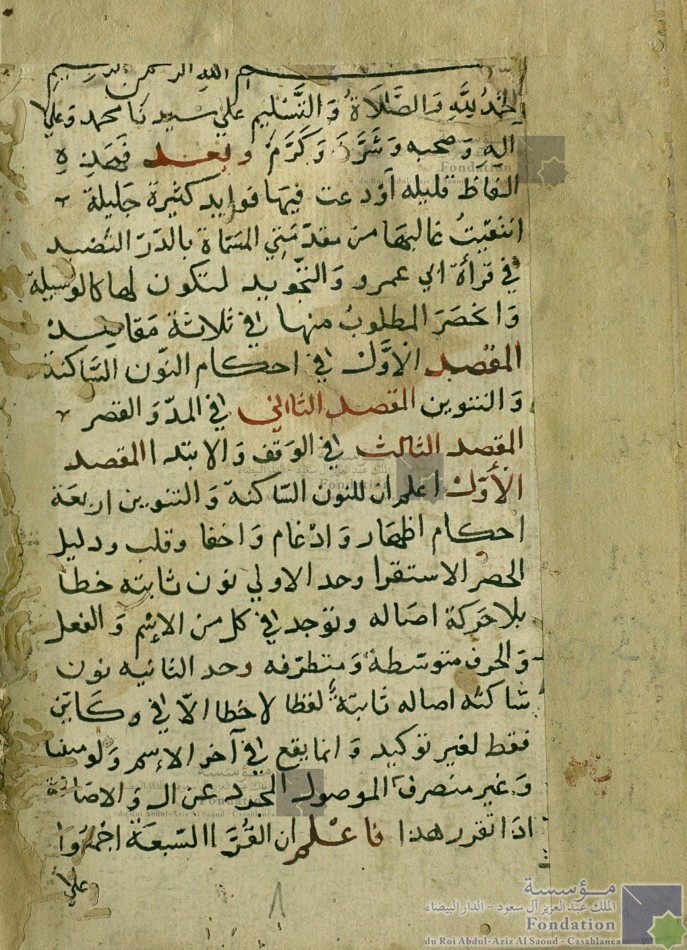 بسم الله الرحمن الرحيم
الحمد لله والصلاة والتسليم علي سيدنا محمد وعلي
اله وصحبه وشرف وكرم وبعد فهذه
الفاظ قليله أودعت فيها فوايد كثيرة جليلة
انتقيت غالبها من مقدمتي المسماة بالدر النضيد
في قرأة ابي عمرو والتجويد لتكون لها كالوسيلة
وانحصر المطلوب منها في ثلاثة مقاصد
المقصد الاول في احكام النون الساكنة
والتنوين المقصد الثاني في المد والقصر
المقصد الثالث في الوقف والابتدا المقصد
الأول اعلم ان للنون الساكنة والتنوين اربعة
احكام اظهار وادغام واخفا وقلب ودليل
الحصر الاستقرا وحد الاولي نون ثابته خطا
بلا حركة اصاله وتوجد في كل من الاسم والفعل
والحرف متوسطة ومتطرفه وحد الثانيه نون
ساكنه اصاله ثابتة لفظا لا خطا الا في وكاين
فقط لغير توكيد وانما يقع في آخر الاسم ولو مبنيا
وغير منصرف الموصول المجرد عن ال والاضافة
اذا تقرر هذا فاعلم ان القرا السبعة اجمعوا
علي
مؤسسة
الملك عبد العزيز آل سعود - الدار البيضاء
Fondation
du Roi Abdul-Aziz Al Saoud - Casablanca